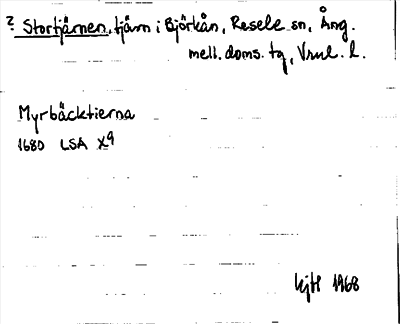 ? Stortjärnen, tjärn i Björkån, Resele sn, Ång.
mell. doms. tg, Vnrl. l.
Myrbäcktierna
1680 LSA X9
1968